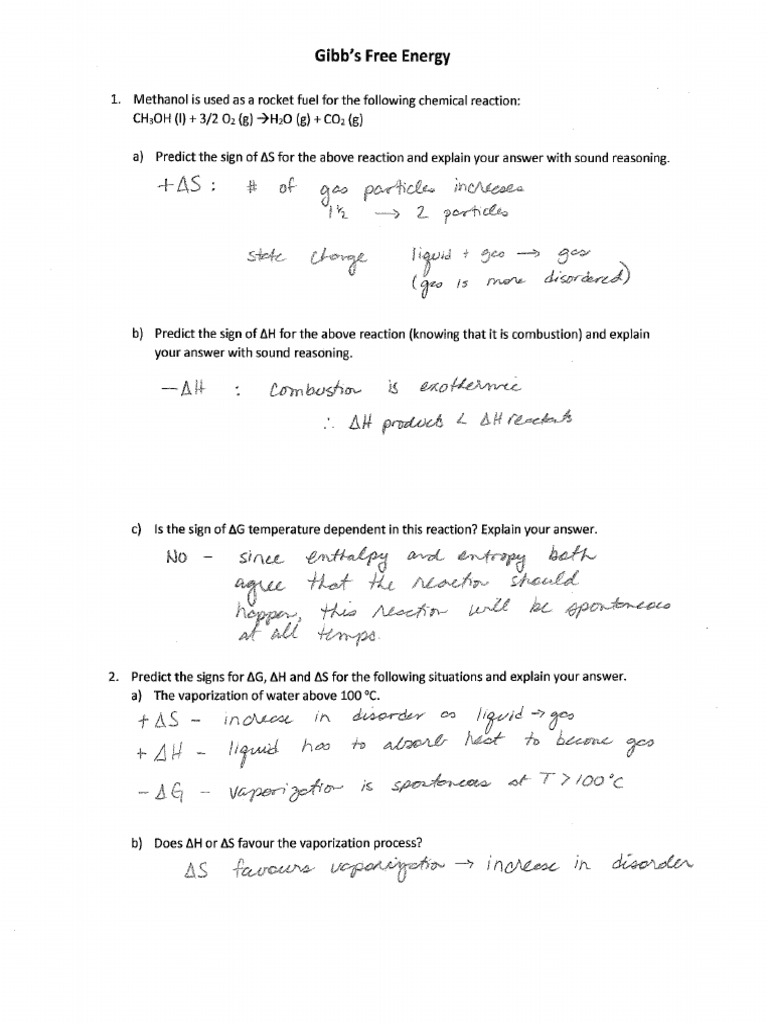 Gibb's Free Energy
1. Methanol is used as a rocket fuel for the following chemical reaction:
CH₃OH (l) + 3/2 O₂ (g) →H₂O (g) + CO₂ (g)
a) Predict the sign of ΔS for the above reaction and explain your answer with sound reasoning.
+ΔS : # of gas particles increases
1½ → 2 particles
state change liquid + gas → gas
(gas is more disordered)
b) Predict the sign of ΔH for the above reaction (knowing that it is combustion) and explain
your answer with sound reasoning.
-ΔH : Combustion is exothermic
∴ ΔH products < ΔH reactants
c) Is the sign of ΔG temperature dependent in this reaction? Explain your answer.
No - since enthalpy and entropy both
agree that the reaction should
happen, this reaction will be spontaneous
at all temps.
2. Predict the signs for ΔG, ΔH and ΔS for the following situations and explain your answer.
a) The vaporization of water above 100 °C.
+ ΔS - increase in disorder as liquid → gas
+ ΔH - liquid has to absorb heat to become gas
- ΔG - vaporization is spontaneous at T > 100°C
b) Does ΔH or ΔS favour the vaporization process?
ΔS favours vaporization → increase in disorder